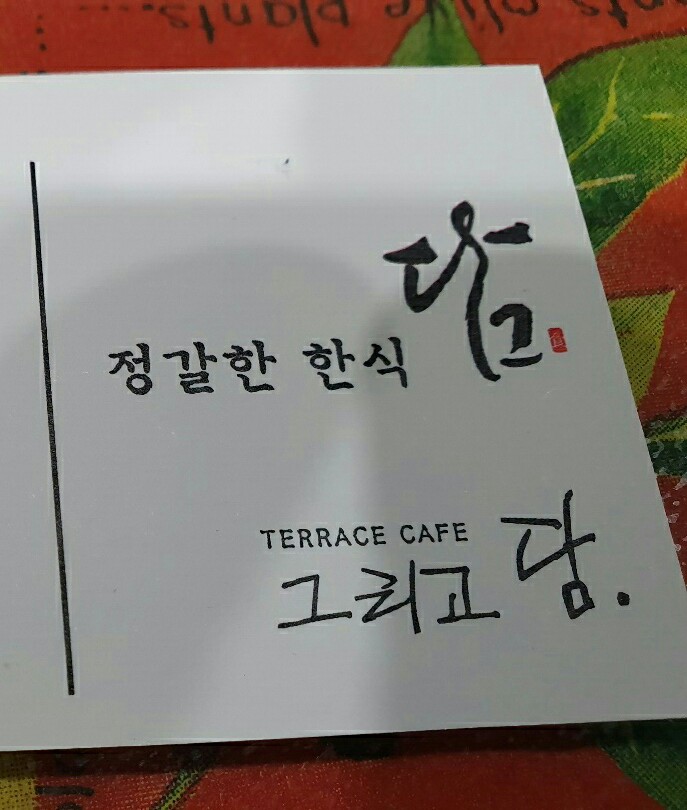 정갈한 한식 담
TERRACE CAFE
그리고 담.